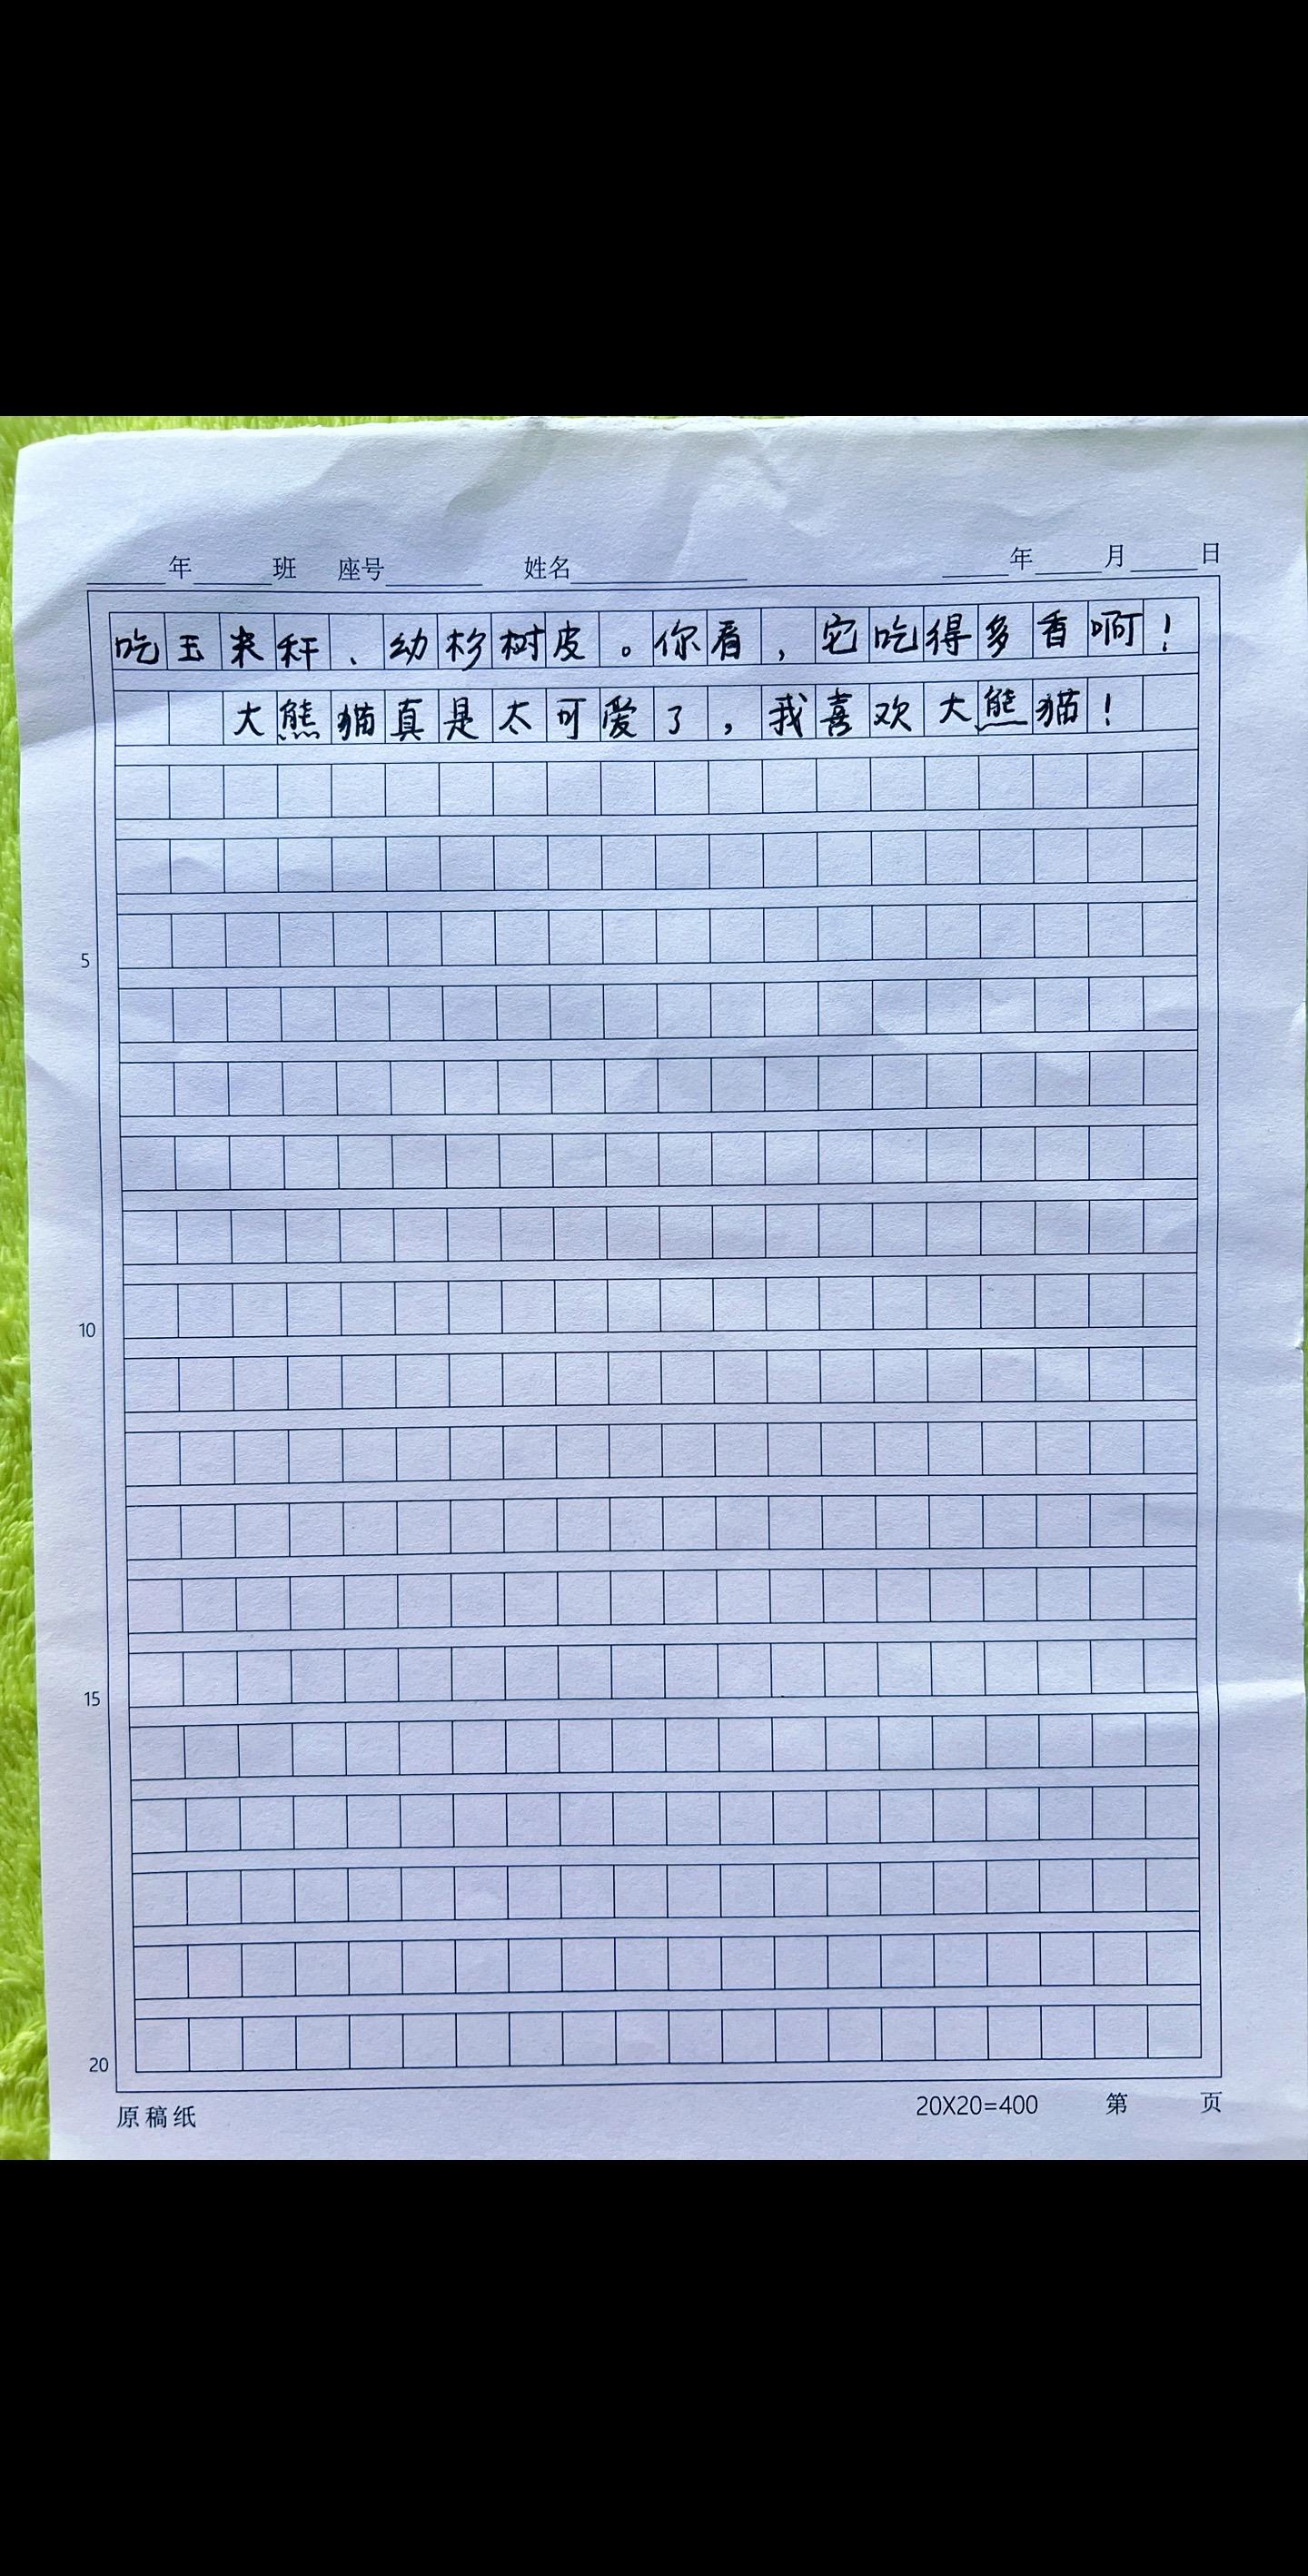 年 班 座号 姓名 年 月 日
吃玉米秆、幼杉树皮。你看，它吃得多香啊！
大熊猫真是太可爱了，我喜欢大熊猫！
5
10
15
20
原稿纸 20X20=400 第 页